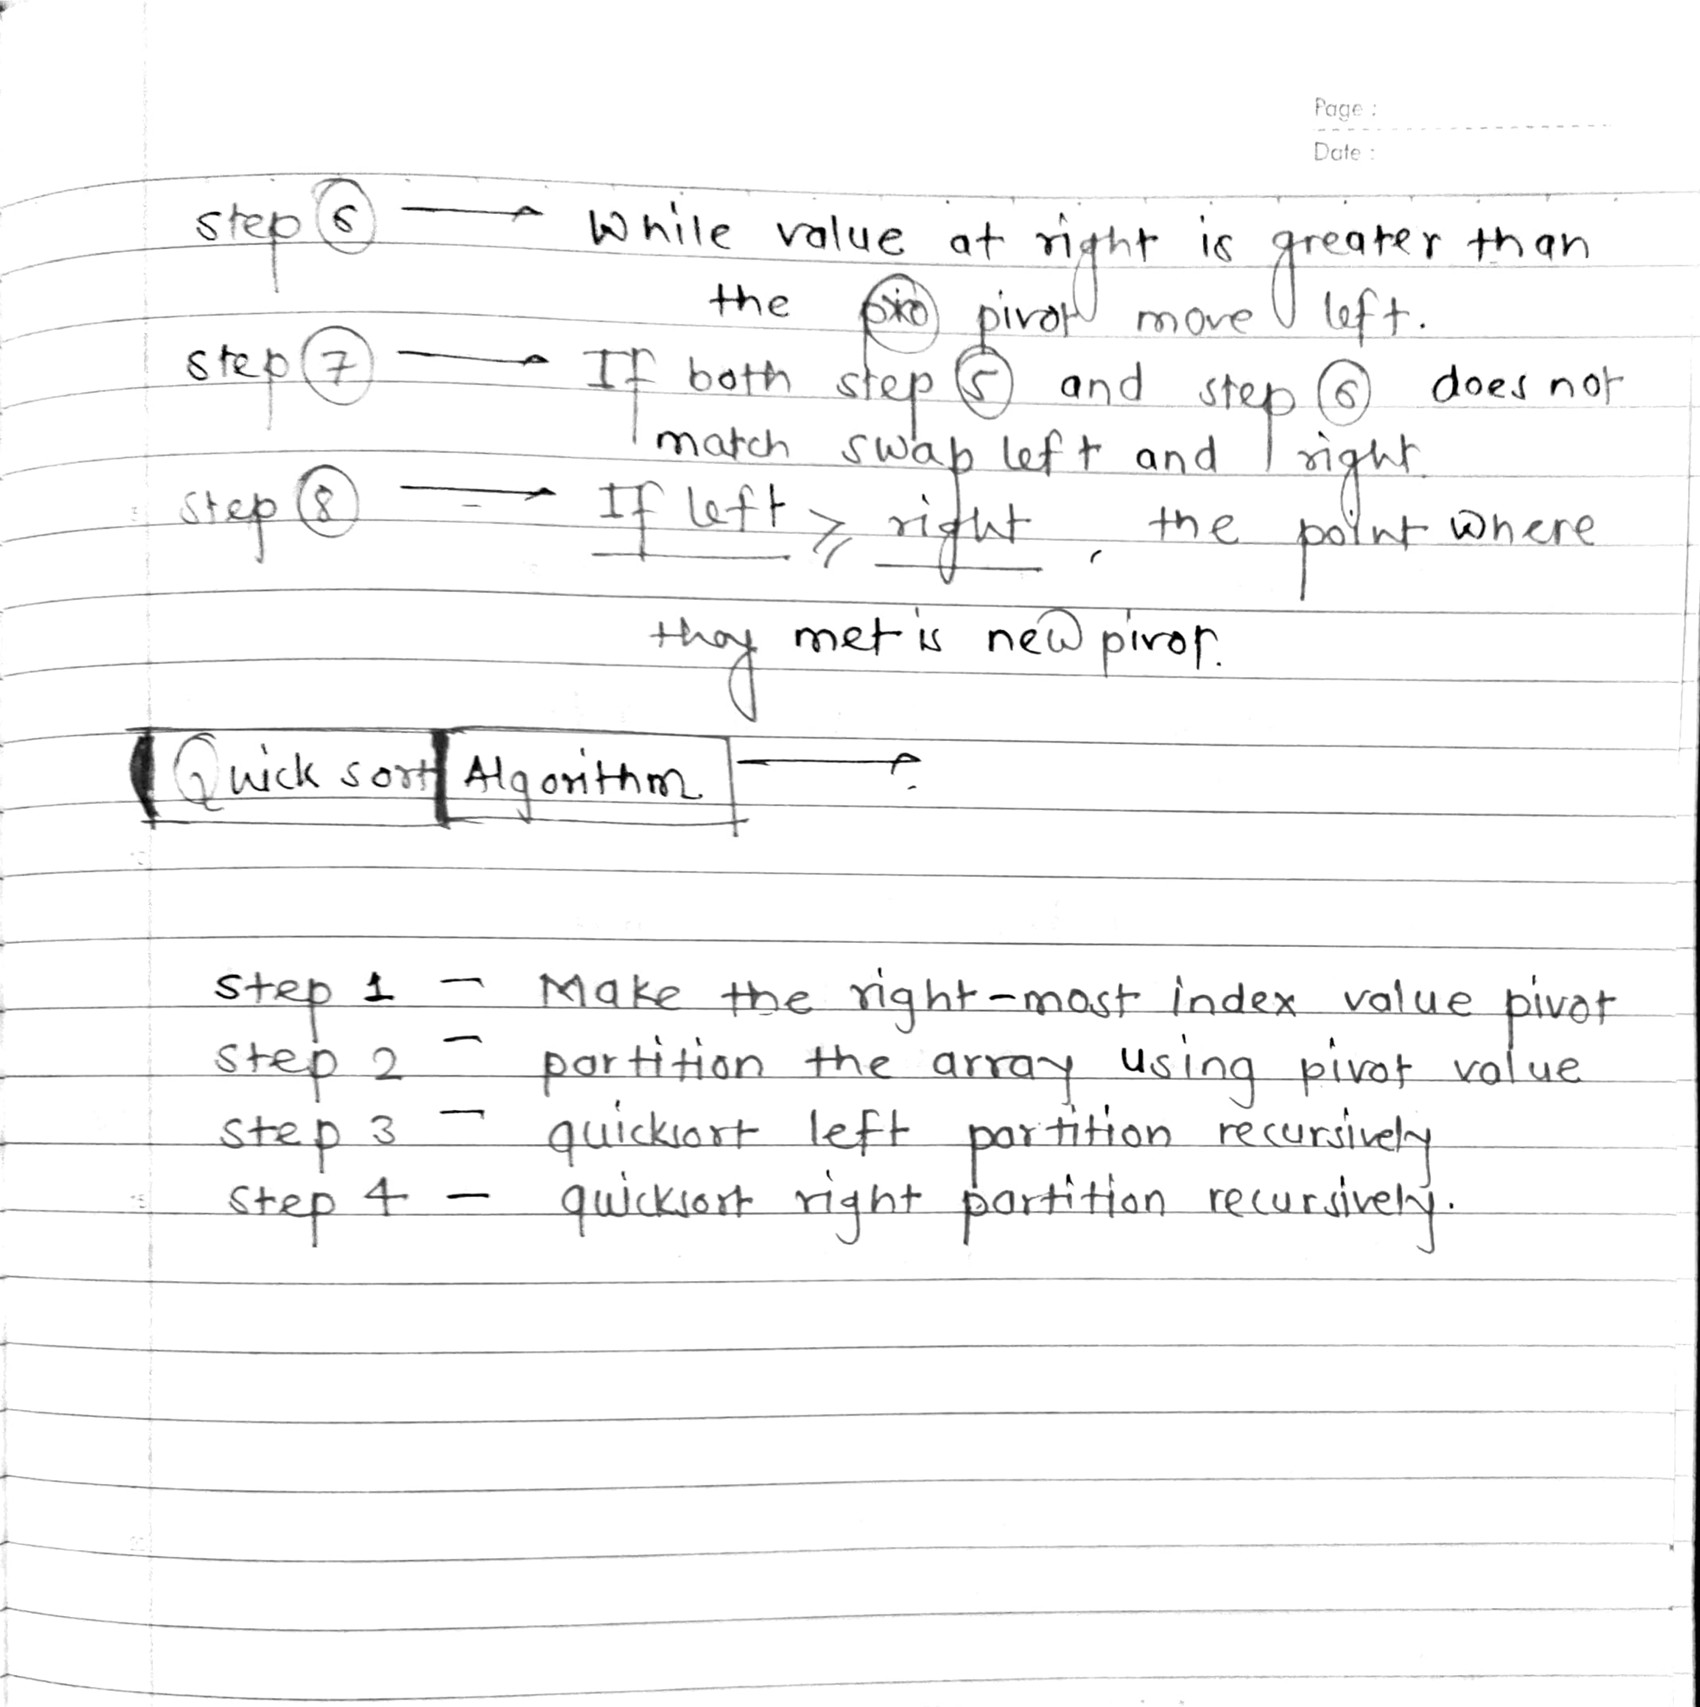 Page :
Date :
step 6 → While value at right is greater than
the pivot move left.
step 7 → If both step 5 and step 6 does not
match swap left and right.
step 8 → If left ⩾ right, the point where
they met is new pivot.
Quick sort Algorithm →
step 1 - Make the right-most index value pivot
step 2 - partition the array using pivot value
step 3 - quicksort left partition recursively
step 4 - quicksort right partition recursively.